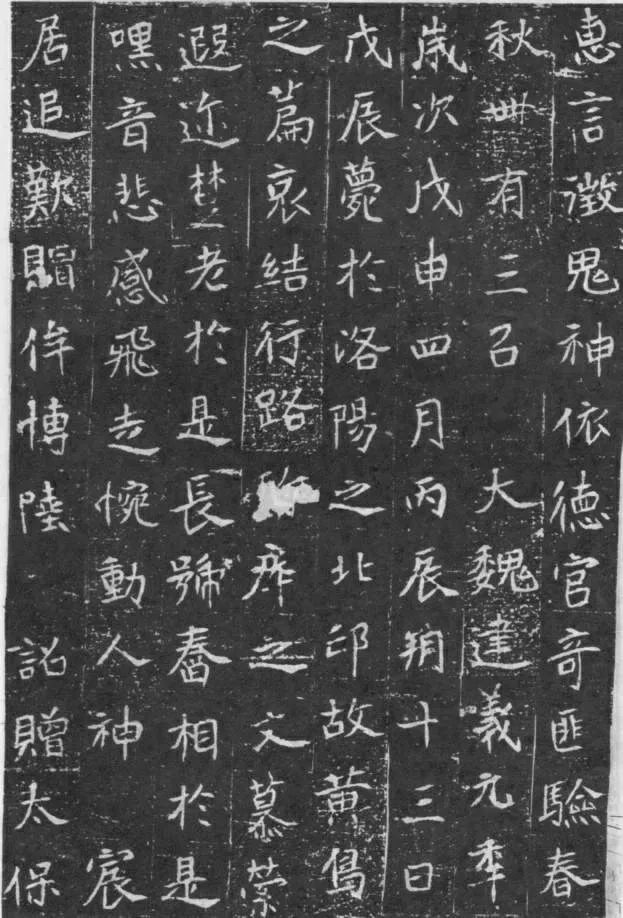 惠言徵鬼神依德官奇匪驗春
秋卌有三以大魏建義元年
歲次戊申四月丙辰朔十三日
戊辰薨於洛陽之北邙故黃鳥
之篇哀結行路斤之文慕縈
遐迩楚老於是長號舂相於是
嘿音悲感飛走惋動人神宸
居追歎賵侔博陸詔贈太保